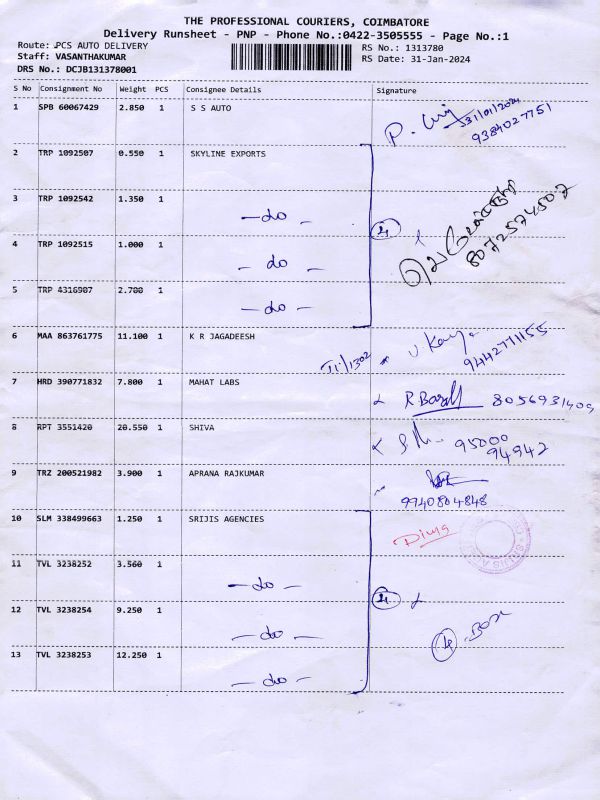 THE PROFESSIONAL COURIERS, COIMBATORE
Delivery Runsheet - PNP - Phone No.:0422-3505555 - Page No.:1
Route: PCS AUTO DELIVERY RS No.: 1313780
Staff: VASANTHAKUMAR RS Date: 31-Jan-2024
DRS No.: DCJB131378001
S No Consignment No Weight PCS Consignee Details Signature
1 SPB 60067429 2.850 1 S S AUTO
31/01/2024
9384027751
2 TRP 1092507 0.550 1 SKYLINE EXPORTS
3 TRP 1092542 1.350 1
- do -
4
4 TRP 1092515 1.000 1
- do -
8072574502
5 TRP 4316907 2.700 1
- do -
6 MAA 863761775 11.100 1 K R JAGADEESH
9442771155
7 HRD 390771832 7.800 1 MAHAT LABS
8056931409
8 RPT 3551420 20.550 1 SHIVA
95000
94942
9 TRZ 200521982 3.900 1 APRANA RAJKUMAR
9940804848
10 SLM 338499663 1.250 1 SRIJIS AGENCIES
11 TVL 3238252 3.560 1
- do -
4
12 TVL 3238254 9.250 1
- do -
4 Box
13 TVL 3238253 12.250 1
- do -